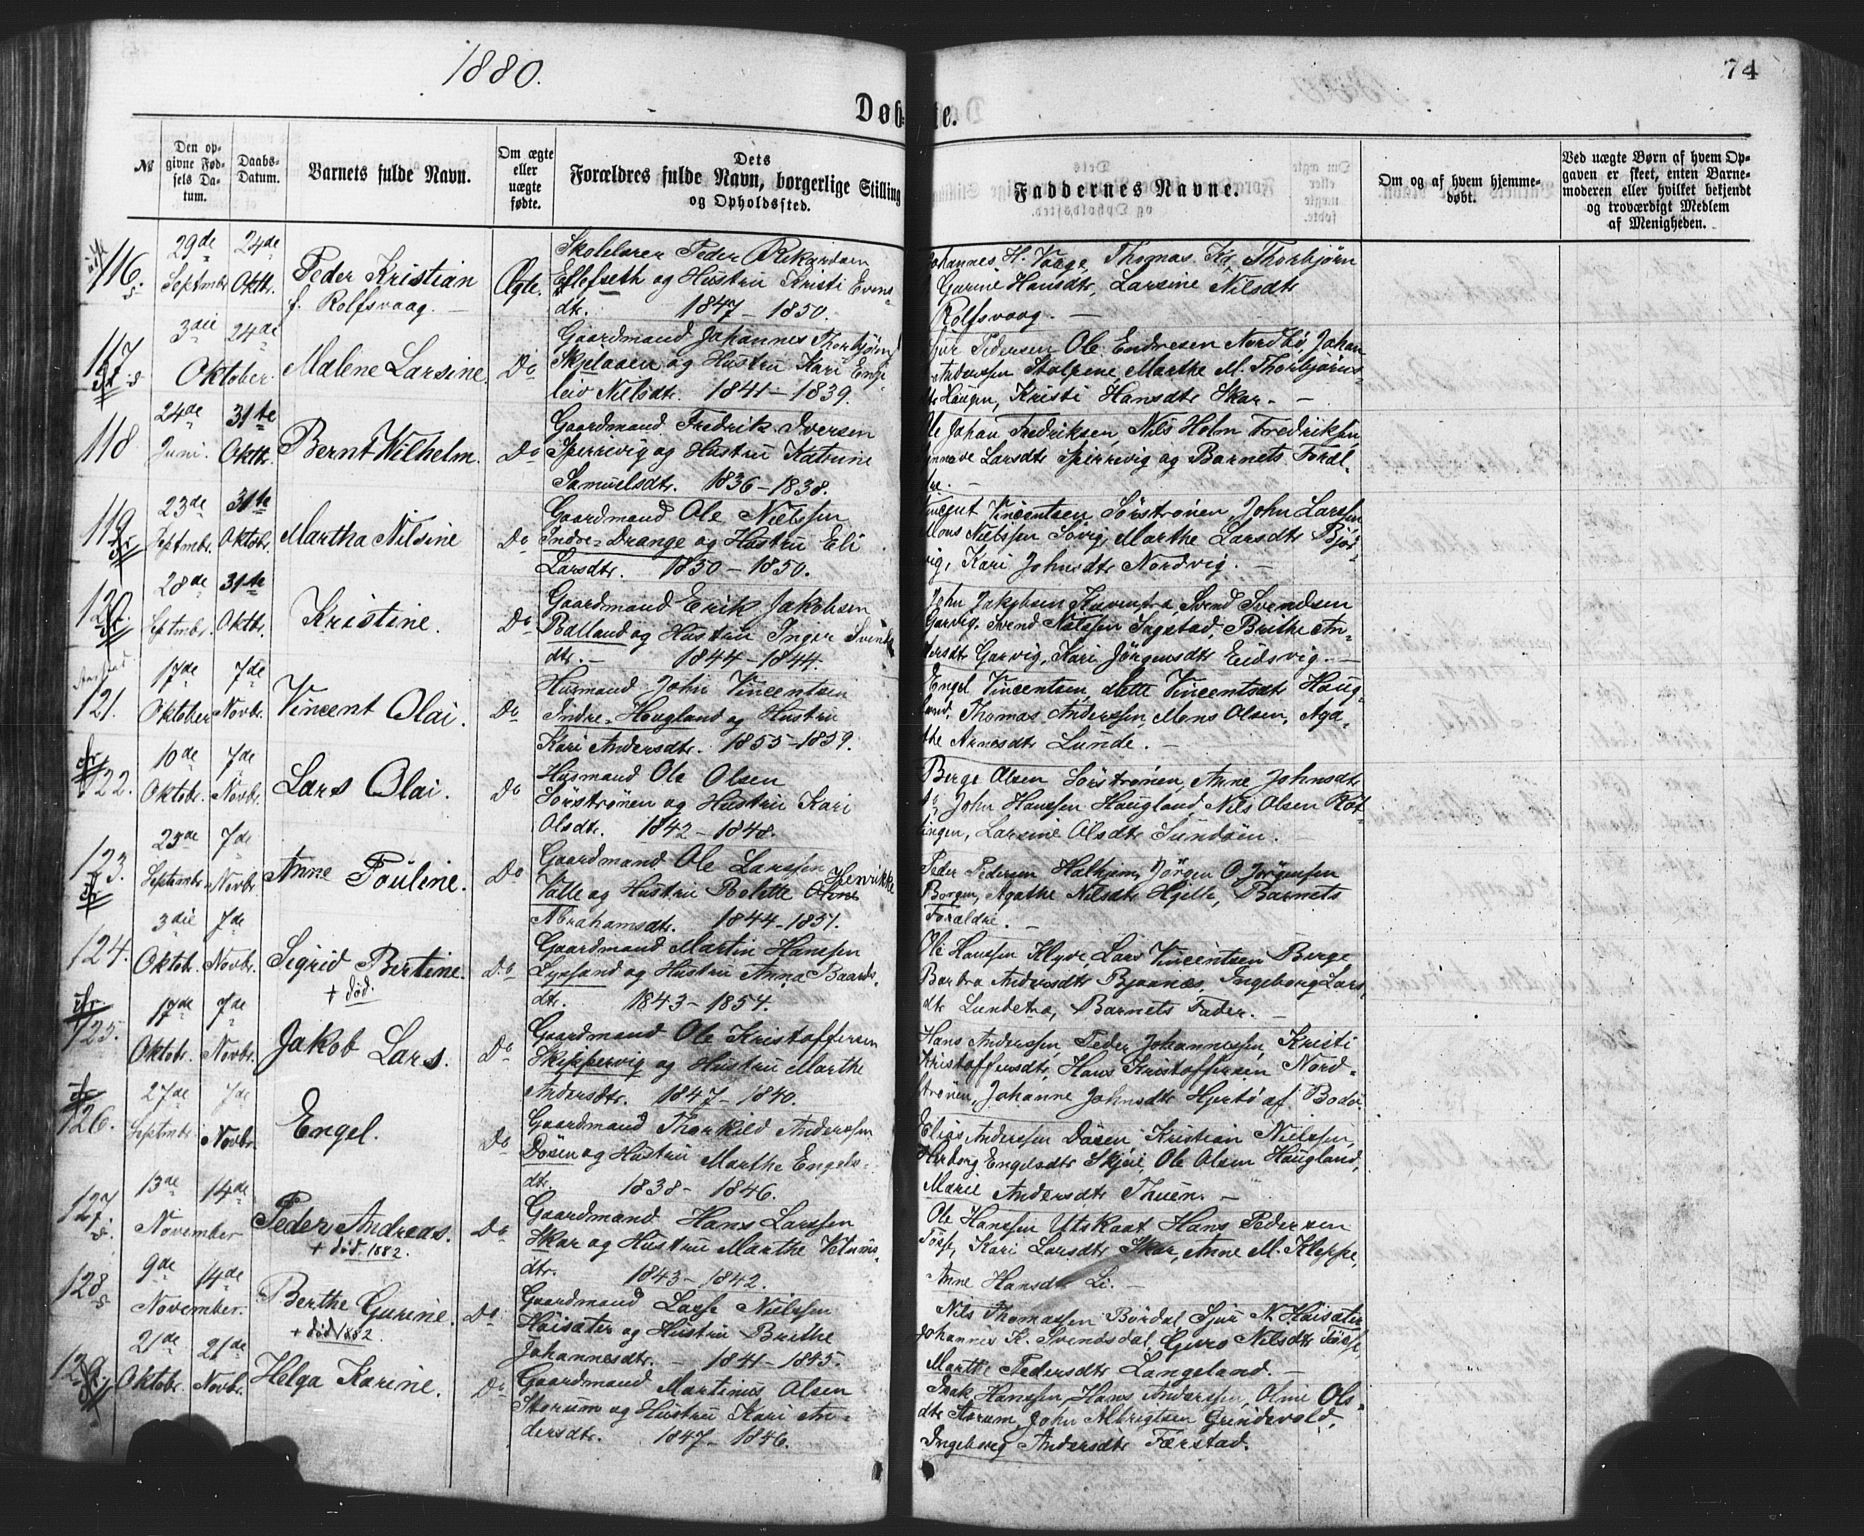 1880.
74
Døbte.
№
Den opgivne Fødsels Datum.
Daabs-Datum.
Barnets fulde Navn.
Om ægte eller uægte fødte.
Dets Forældres fulde Navn, borgerlige Stilling og Opholdssted.
Faddernes Navne.
Om og af hvem hjemmedøbt.
Ved uægte Børn af hvem Opgaven er skeet, enten Barnemoderen eller hvilket bekjendt og troværdigt Medlem af Menigheden.
116. 29de Septmbr. 24de Oktbr. Peder Kristian f. Rolfsvaag. Ægte.
Skolelærer Peder Rikardsen
Eflefseth og Hustru Kristi Evens-
dtr. 1847 - 1850.
Johannes H. Vaage, Thomas Thorbjørn
Garine Hansdtr, Larsine Nilsdtr
Rolfsvaag.
117. 3die 24de Oktober. Malene Larsine. Do
Gaardmand Johannes Thorbjørns
Skjelaasen og Hustru Kari Enge-
leiv Nielsdtr. 1841 - 1839.
Pedersen Ole Endresen Nordbø, Johan
Anderssen Stolpene Marthe M. Thorbjørns-
dtr Haugen, Kristi Hansdtr Skar.
118 24de Juni. 31te Oktbr. Bernt Wilhelm. Do
Gaardmand Fredrik Iversen
Sperrevig og Hustru Katrine
Samuelsdtr. 1836 - 1838.
Ole Johan Fredriksen, Nils Holm Fredriksen,
Larsdtr Sperrevig og Barnets Foræl-
dre.
119. 23de Septmbr. 31te Oktobr. Martha Nilsine Do
Gaardmand Ole Nielssen
Indre-Drange og Hustru Eli
Larsdtr. 1830 - 1850.
Vincent Vincentsen Sørstrønen, John Larsen
Mons Nielssen Søvig, Marthe Larsdtr Bjør-
vig, Kari Johnsdtr Nordvig.
120. 28de Septmbr. 31te Oktbr. Kristine. Do
Gaardmand Erik Jakobsen
Balland og Hustru Inger Svends-
dtr. 1844 - 1844.
John Jakobsen Svend Svendsen
Garvig, Svend Nilssen Sagstad, Brithe An-
dersdtr Garvig, Kari Jørgensdtr Eidsvig.
121. 17de Oktober 7de Novbr. Vincent Olai. Do
Husmand John Vincentsen
Indre-Hougland og Hustru
Kari Andersdtr. 1855 - 1859.
Engel Vincentsen, Vincentsdtr Haug-
land, Thomas Anderssen, Mons Olsen, Aga-
the Arnesdtr Lunde.
122. 10de Oktobr. 7de Novbr. Lars Olai. Do
Husmand Ole Olsen
Sørstrønen og Hustru Kari
Olsdtr. 1842 - 1848.
Berge Olsen Sørstrønen, Anne Johnsdtr
Do, John Hanssen Haugland, Nils Olsen Røt-
tingen, Larsine Olsdtr Sundøen.
123. 23de Septmbr. 7de Novbr. Anne Pouline. Do
Gaardmand Ole Larssen
Valle og Hustru Bolette Henrikke
Abrahamsdtr. 1844 - 1851.
Peder Pedersen Halhjem, Jørgen O. Jørgensen
Borgen, Agathe Nilsdtr Hjelle, Barnets
Forældre.
124. 3die Oktob. 7de Novbr. Sigrid Birtine. + død. Do
Gaardmand Martin Hanssen
Lyssand og Hustru Anna Baards-
dtr. 1843 - 1854.
Ole Hanssen Klyve Lars Vincentsen Berge
Barbra Andersdtr Bjaanæs, Ingeborg Lars-
dtr Lundetræ, Barnets Fader.
125. 17de Oktobr. 7de Novbr. Jakob Lars. Do
Gaardmand Ole Kristoffersen
Skippervig og Hustru Marthe
Andersdtr. 1847 - 1840.
Hans Anderssen, Peder Johannessen, Kristi
Kristoffersdtr, Hans Kristoffersen Nord-
strønen, Johanne Johnsdtr Hjertø af Bodø.
126. 27de Septmbr. 7de Novbr. Engel. Do
Gaardmand Thorkild Anderssen
Døsen og Hustru Marthe Engels-
dtr. 1838 - 1846.
Elias Anderssen Døsen, Kristian Nielssen,
Herborg Engelsdtr Skjeie, Ole Olsen Haugland,
Marie Andersdtr Thuen.
127. 13de 14de November Peder Andreas. + død 1882. Do
Gaardmand Hans Larssen
Skar og Hustru Marthe
dtr. 1843 - 1842.
Ole Hanssen Utskaat Hans Pedersen
Tøsse, Kari Larsdtr Skar, Anne M. Kleppe,
Anne Hansdtr Li.
128. 9de 14de November. Berthe Gurine. + død 1882. Do
Gaardmand Lasse Nielssen
Høisæter og Hustru Birthe
Johannesdtr. 1841 - 1845.
Nils Thomassen Børdal Sjur N. Høisæter
Johannes K. Svendsdal, Guro Nilsdtr Tøsse
Marthe Pedersdtr Langeland.
129. 21de Oktobr. 21de Novbr. Helga Karine. Do
Gaardmand Martinus Olsen
Storum og Hustru Kari An-
dersdtr. 1847 - 1846.
Isak Hanssen, Hans Anderssen, Oline Ols-
dtr Storum, John Albrigtsen Grindevold,
Ingeborg Andersdtr Færstad.